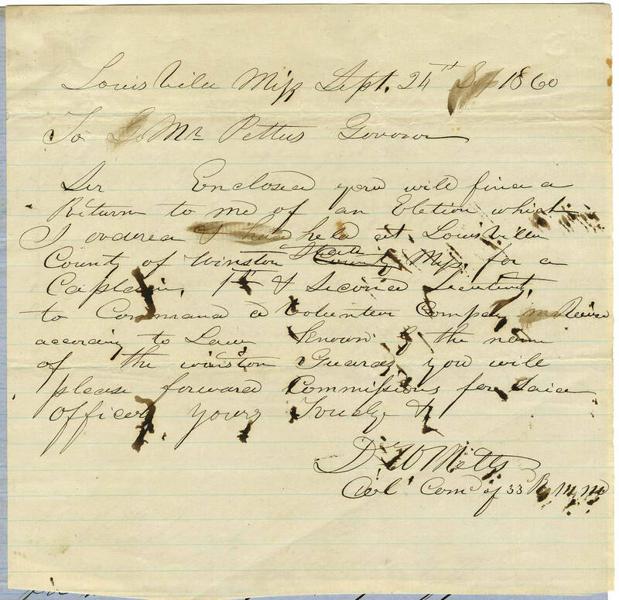 Louisville Miss Sept. 24th 1860
To Mr Pettus Govoner
Sir Enclosed you will find a
Return to me of an Eletion which
I ordered held at Louisville
County of Winston State of Miss, for a
Captain, 1st & Second Lieutent,
to Command a Volunteer Company
according to Law Known by the name
of the winston Guards, you will
please forward Commissions for said
officers yours Truely &c
D. W Metts
Col Comd of 33 R M M